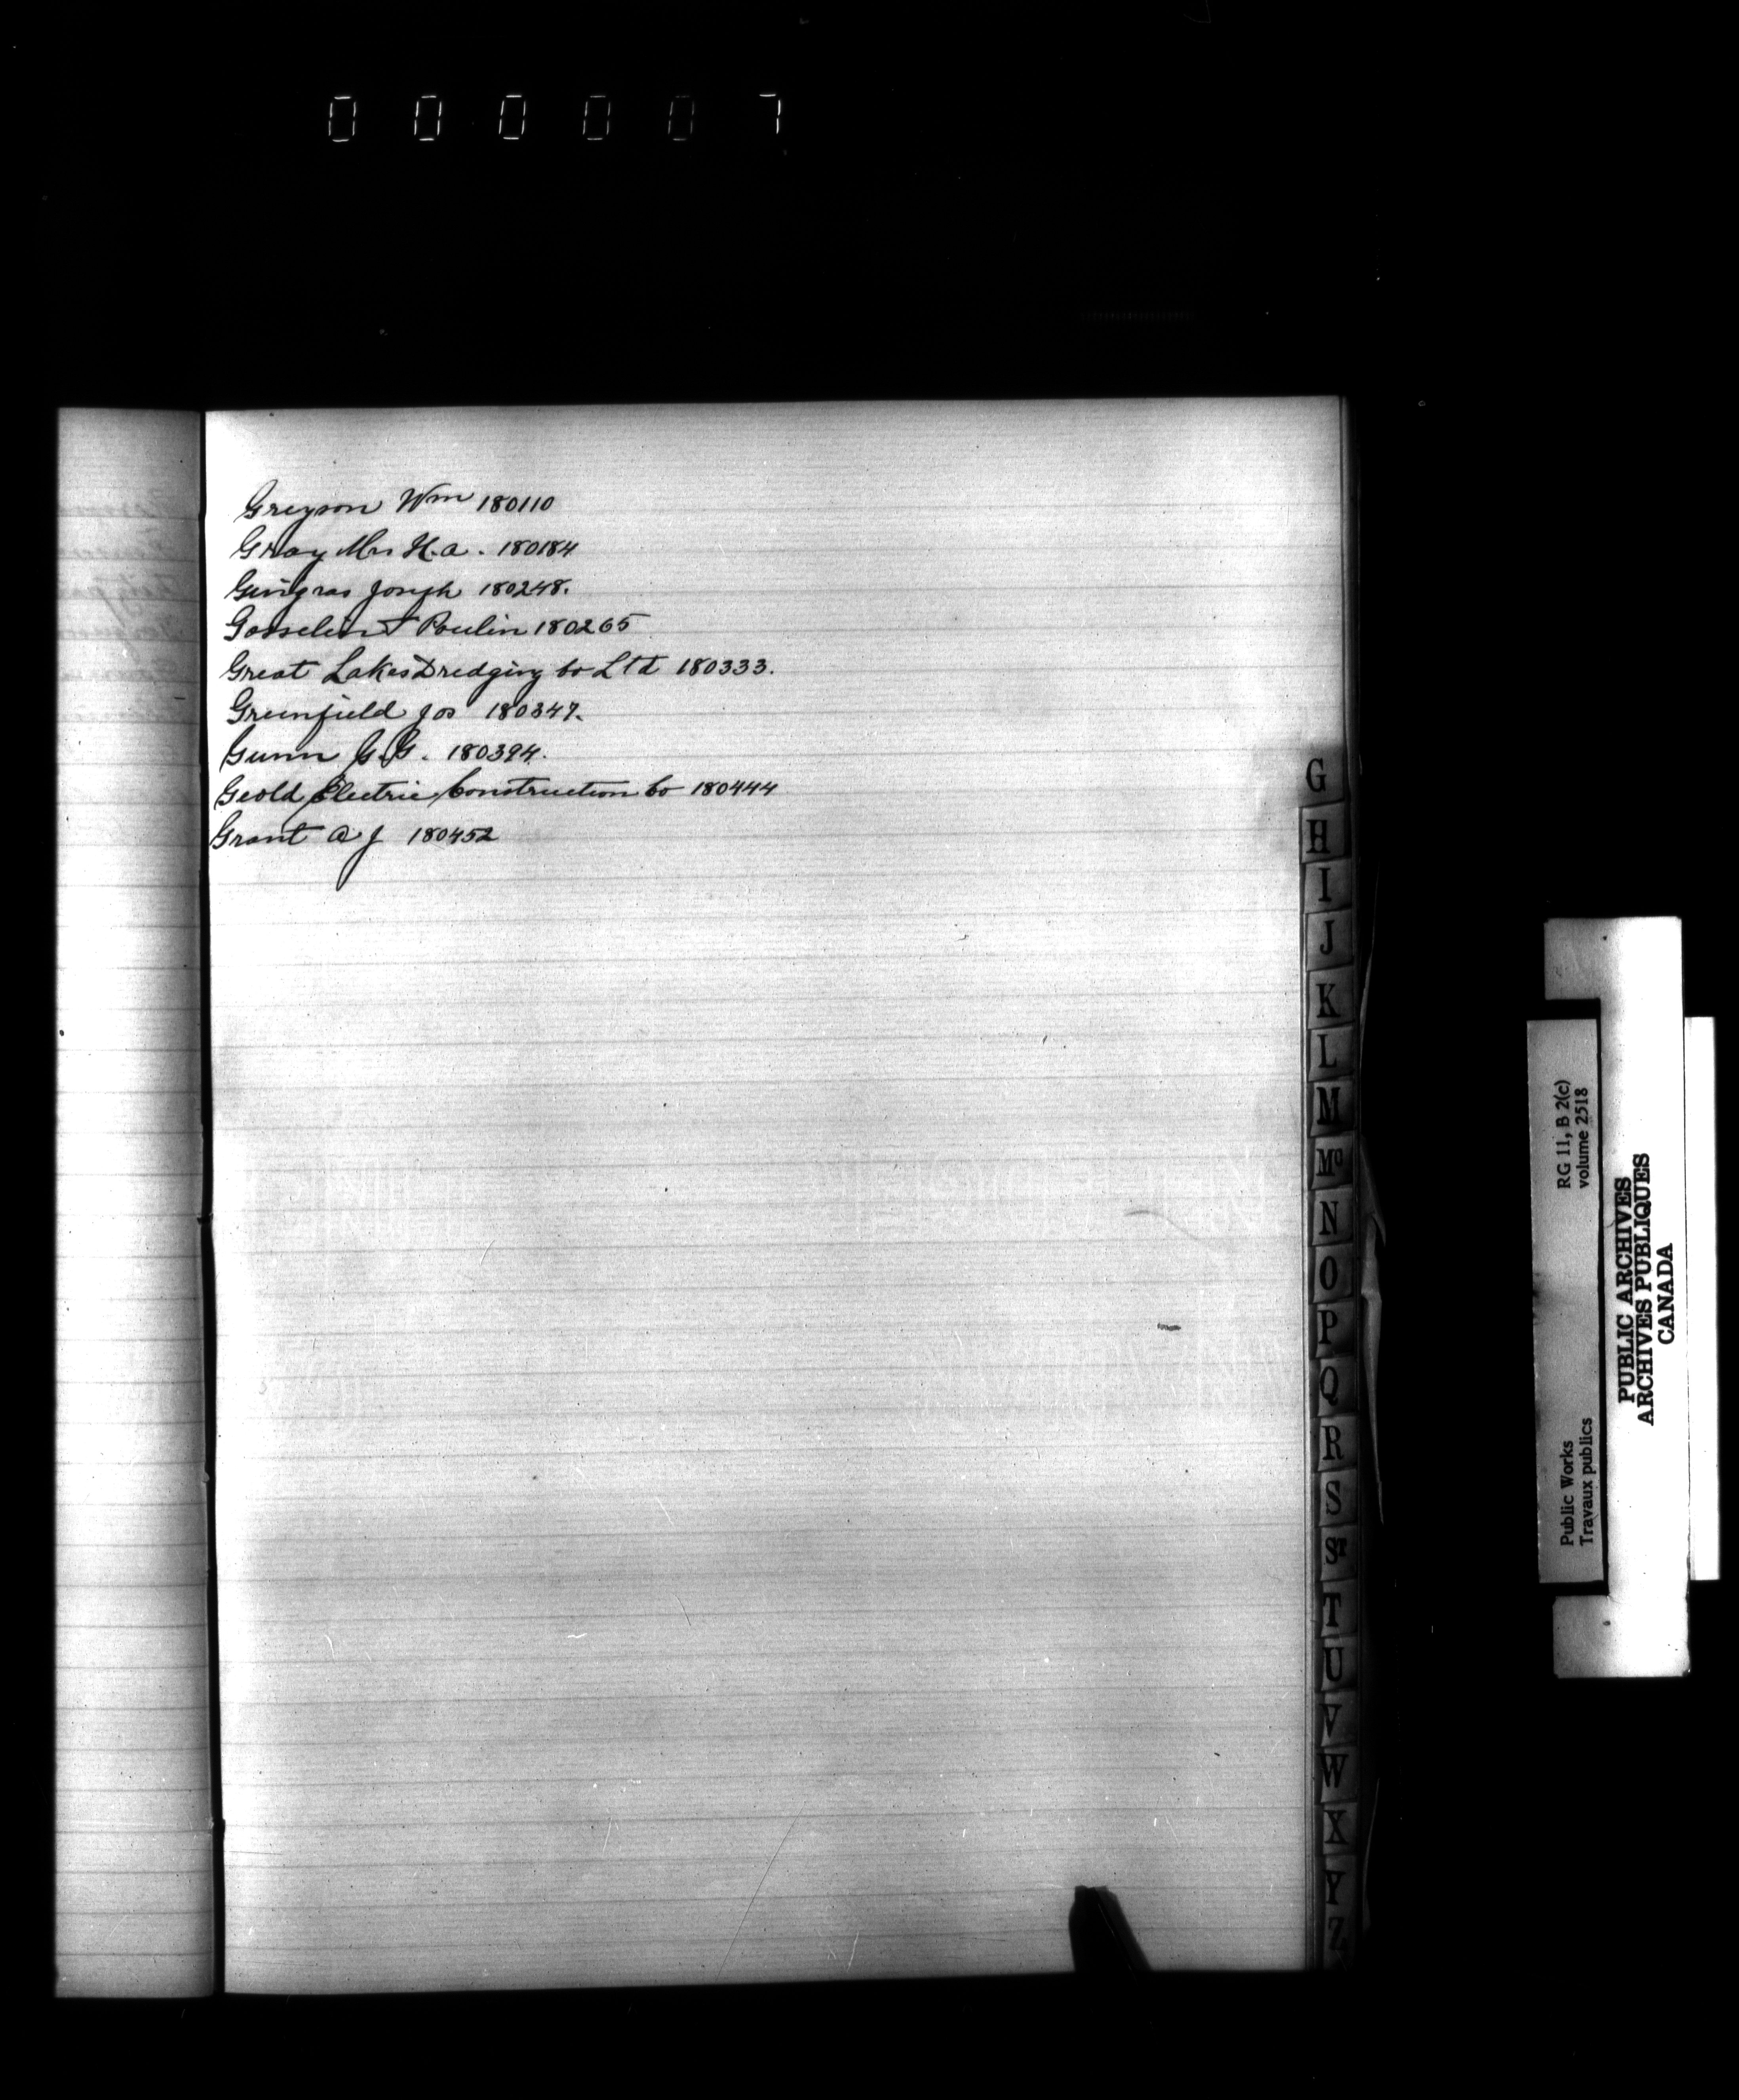 000007
Greyson Wm 180110
Gray Mrs H.A. 180184
Gingras Joseph 180248.
Gosselin & Poulin 180265
Great Lakes Dredging Co Ltd 180333.
Greenfield Jos 180347.
Gunn G.G. 180394.
Electric Construction Co 180444
Grant A J 180452
G
H
I
J
K
L
M
Mc
N
O
P
Q
R
S
T
U
V
W
X
Y
Z
Public Works RG 11, B 2(c)
Travaux publics volume 2518
PUBLIC ARCHIVES
ARCHIVES PUBLIQUES
CANADA